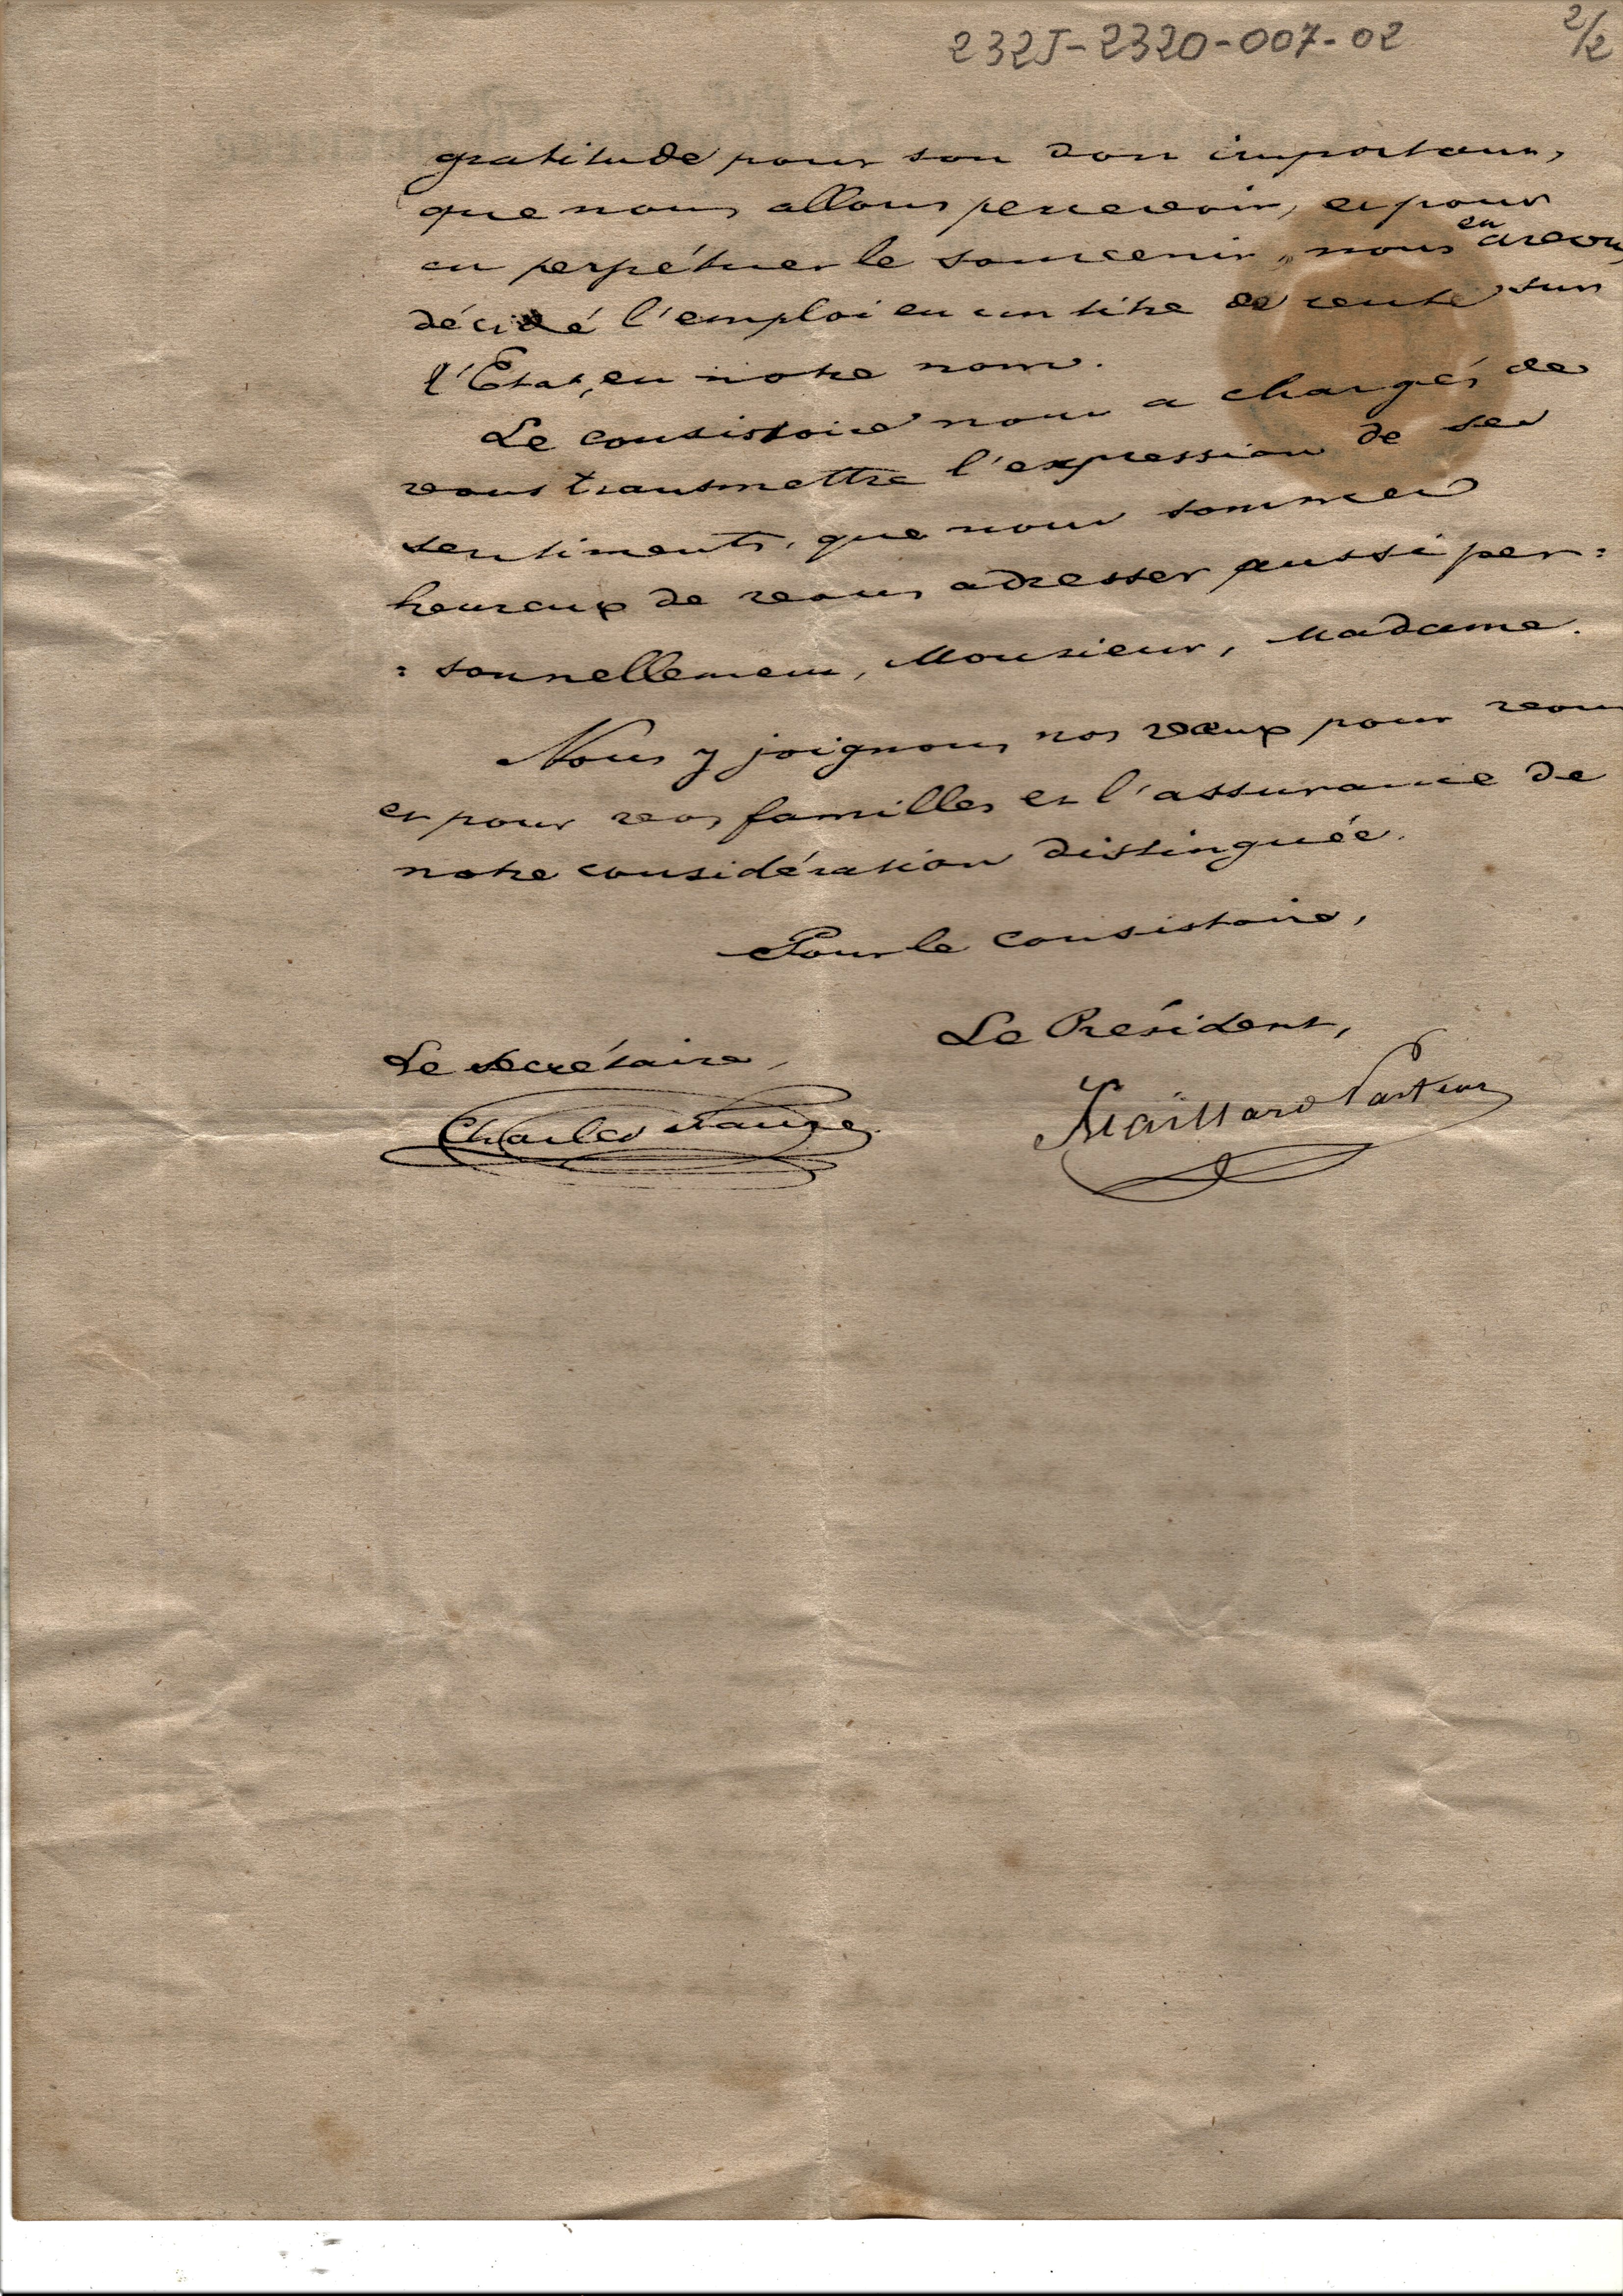 232J-2320-007-02
2/2
gratitude pour son don important,
que nous allons percevoir, et pour
en perpétuer le souvenir, nous en avons
décidé l'emploi en un titre de rente sur
l'Etat, en notre nom.
Le consistoire nous a chargés de
vous transmettre l'expression de ses
sentiments, que nous sommes
heureux de vous adresser aussi per=
=sonnellement, Monsieur, Madame.
Nous y joignons nos vœux pour vous
et pour vos familles et l'assurance de
notre considération distinguée.
Pour le consistoire,
Le Président,
Le secrétaire,
Charles
Maillard Pasteur